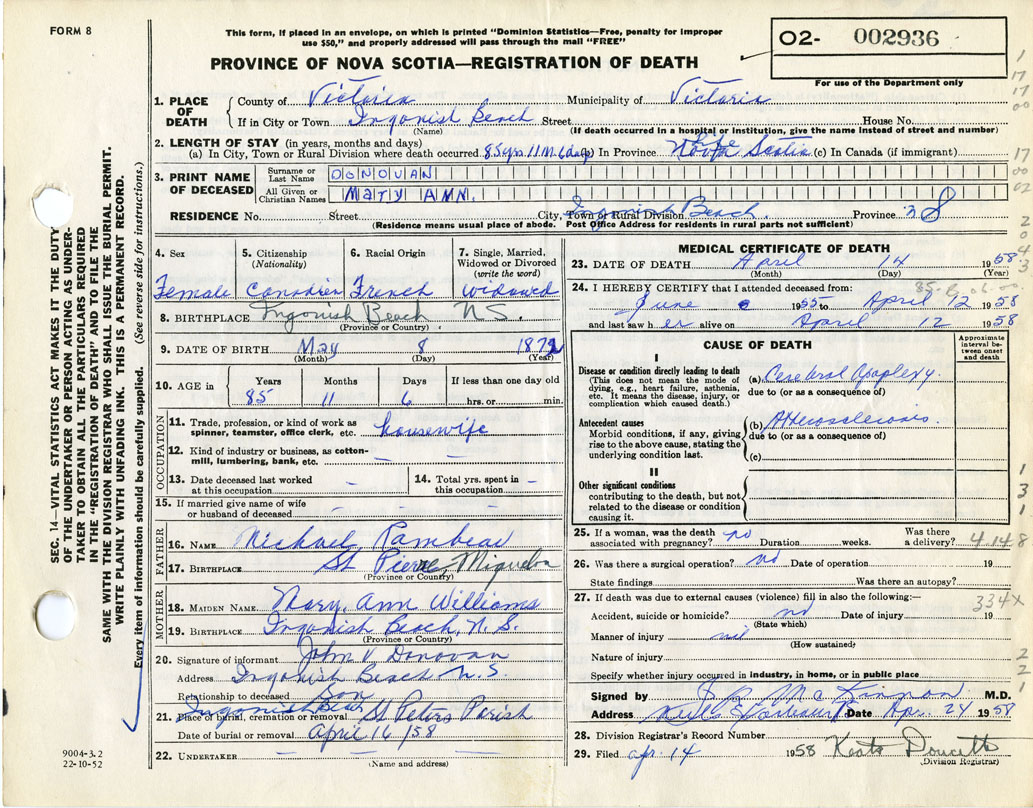 FORM 8
This form, if placed in an envelope, on which is printed "Dominion Statistics—Free, penalty for improper
use $50," and properly addressed will pass through the mail "FREE"
O2- 002936
For use of the Department only
PROVINCE OF NOVA SCOTIA—REGISTRATION OF DEATH
SEC. 14—VITAL STATISTICS ACT MAKES IT THE DUTY
OF THE UNDERTAKER OR PERSON ACTING AS UNDER-
TAKER TO OBTAIN ALL THE PARTICULARS REQUIRED
IN THE "REGISTRATION OF DEATH" AND TO FILE THE
SAME WITH THE DIVISION REGISTRAR WHO SHALL ISSUE THE BURIAL PERMIT.
WRITE PLAINLY WITH UNFADING INK. THIS IS A PERMANENT RECORD.
Every item of information should be carefully supplied. (See reverse side for instructions.)
1. PLACE OF DEATH
County of Victoria Municipality of Victoria
If in City or Town Ingonish Beach Street House No.
(Name) (If death occurred in a hospital or institution, give the name instead of street and number)
2. LENGTH OF STAY (in years, months and days)
(a) In City, Town or Rural Division where death occurred 85yrs 11M 6days (b) In Province Life Nova Scotia (c) In Canada (if immigrant)
3. PRINT NAME OF DECEASED
Surname or Last Name DONOVAN
All Given or Christian Names MATY ANN.
RESIDENCE No. Street City, Town or Rural Division Ingonish Beach. Province 38
(Residence means usual place of abode. Post Office Address for residents in rural parts not sufficient)
4. Sex
Female
5. Citizenship
(Nationality)
Canadian
6. Racial Origin
French
7. Single, Married,
Widowed or Divorced
(write the word)
Widowed
8. BIRTHPLACE Ingonish Beach N S.
(Province or Country)
9. DATE OF BIRTH May 8 1872
(Month) (Day) (Year)
10. AGE in Years Months Days If less than one day old
85 11 6 hrs. or min.
OCCUPATION
11. Trade, profession, or kind of work as
spinner, teamster, office clerk, etc. housewife
12. Kind of industry or business, as cotton-
mill, lumbering, bank, etc. – –
13. Date deceased last worked
at this occupation –
14. Total yrs. spent in
this occupation –
15. If married give name of wife
or husband of deceased – –
FATHER
16. NAME Michael Rambeau
17. BIRTHPLACE St Pierre, Miquelon
(Province or Country)
MOTHER
18. MAIDEN NAME Mary. Ann Williams
19. BIRTHPLACE Ingonish Beach, N. S.
(Province or Country)
20. Signature of informant John V Donovan
Address Ingonish Beach N.S.
Relationship to deceased Son
Ingonish Beach
21. Place of burial, cremation or removal St Peters Parish
Date of burial or removal April 16/58
22. UNDERTAKER – – – –
(Name and address)
9004-3.2
22-10-52
MEDICAL CERTIFICATE OF DEATH
23. DATE OF DEATH April 14 1958
(Month) (Day) (Year)
24. I HEREBY CERTIFY that I attended deceased from:
June 1955 to April 12 1958
and last saw her alive on April 12 1958
CAUSE OF DEATH
Approximate
interval be-
tween onset
and death
I
Disease or condition directly leading to death
(This does not mean the mode of
dying, e.g., heart failure, asthenia,
etc. It means the disease, injury, or
complication which caused death.)
(a) Cerebral Apoplexy.
due to (or as a consequence of)
Antecedent causes
Morbid conditions, if any, giving
rise to the above cause, stating the
underlying condition last.
(b) Atherosclerosis.
due to (or as a consequence of)
(c)
II
Other significant conditions
contributing to the death, but not
related to the disease or condition
causing it.
25. If a woman, was the death
associated with pregnancy? no Duration weeks. Was there
a delivery? 4-14 8
26. Was there a surgical operation? no Date of operation 19
State findings Was there an autopsy?
27. If death was due to external causes (violence) fill in also the following:—
334X
Accident, suicide or homicide? no Date of injury 19
(State which)
Manner of injury nil
(How sustained)
Nature of injury
Specify whether injury occurred in industry, in home, or in public place
Signed by McKinnon M.D.
Address Date Apr. 24 1958
28. Division Registrar's Record Number
29. Filed apr. 14 1958 Keats Doucett
(Division Registrar)